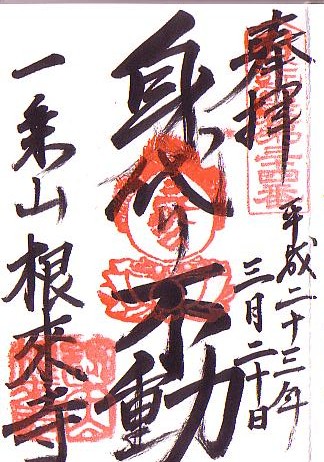 奉拝
平成二十三年
三月二十日
身代り不動
一乗山根来寺